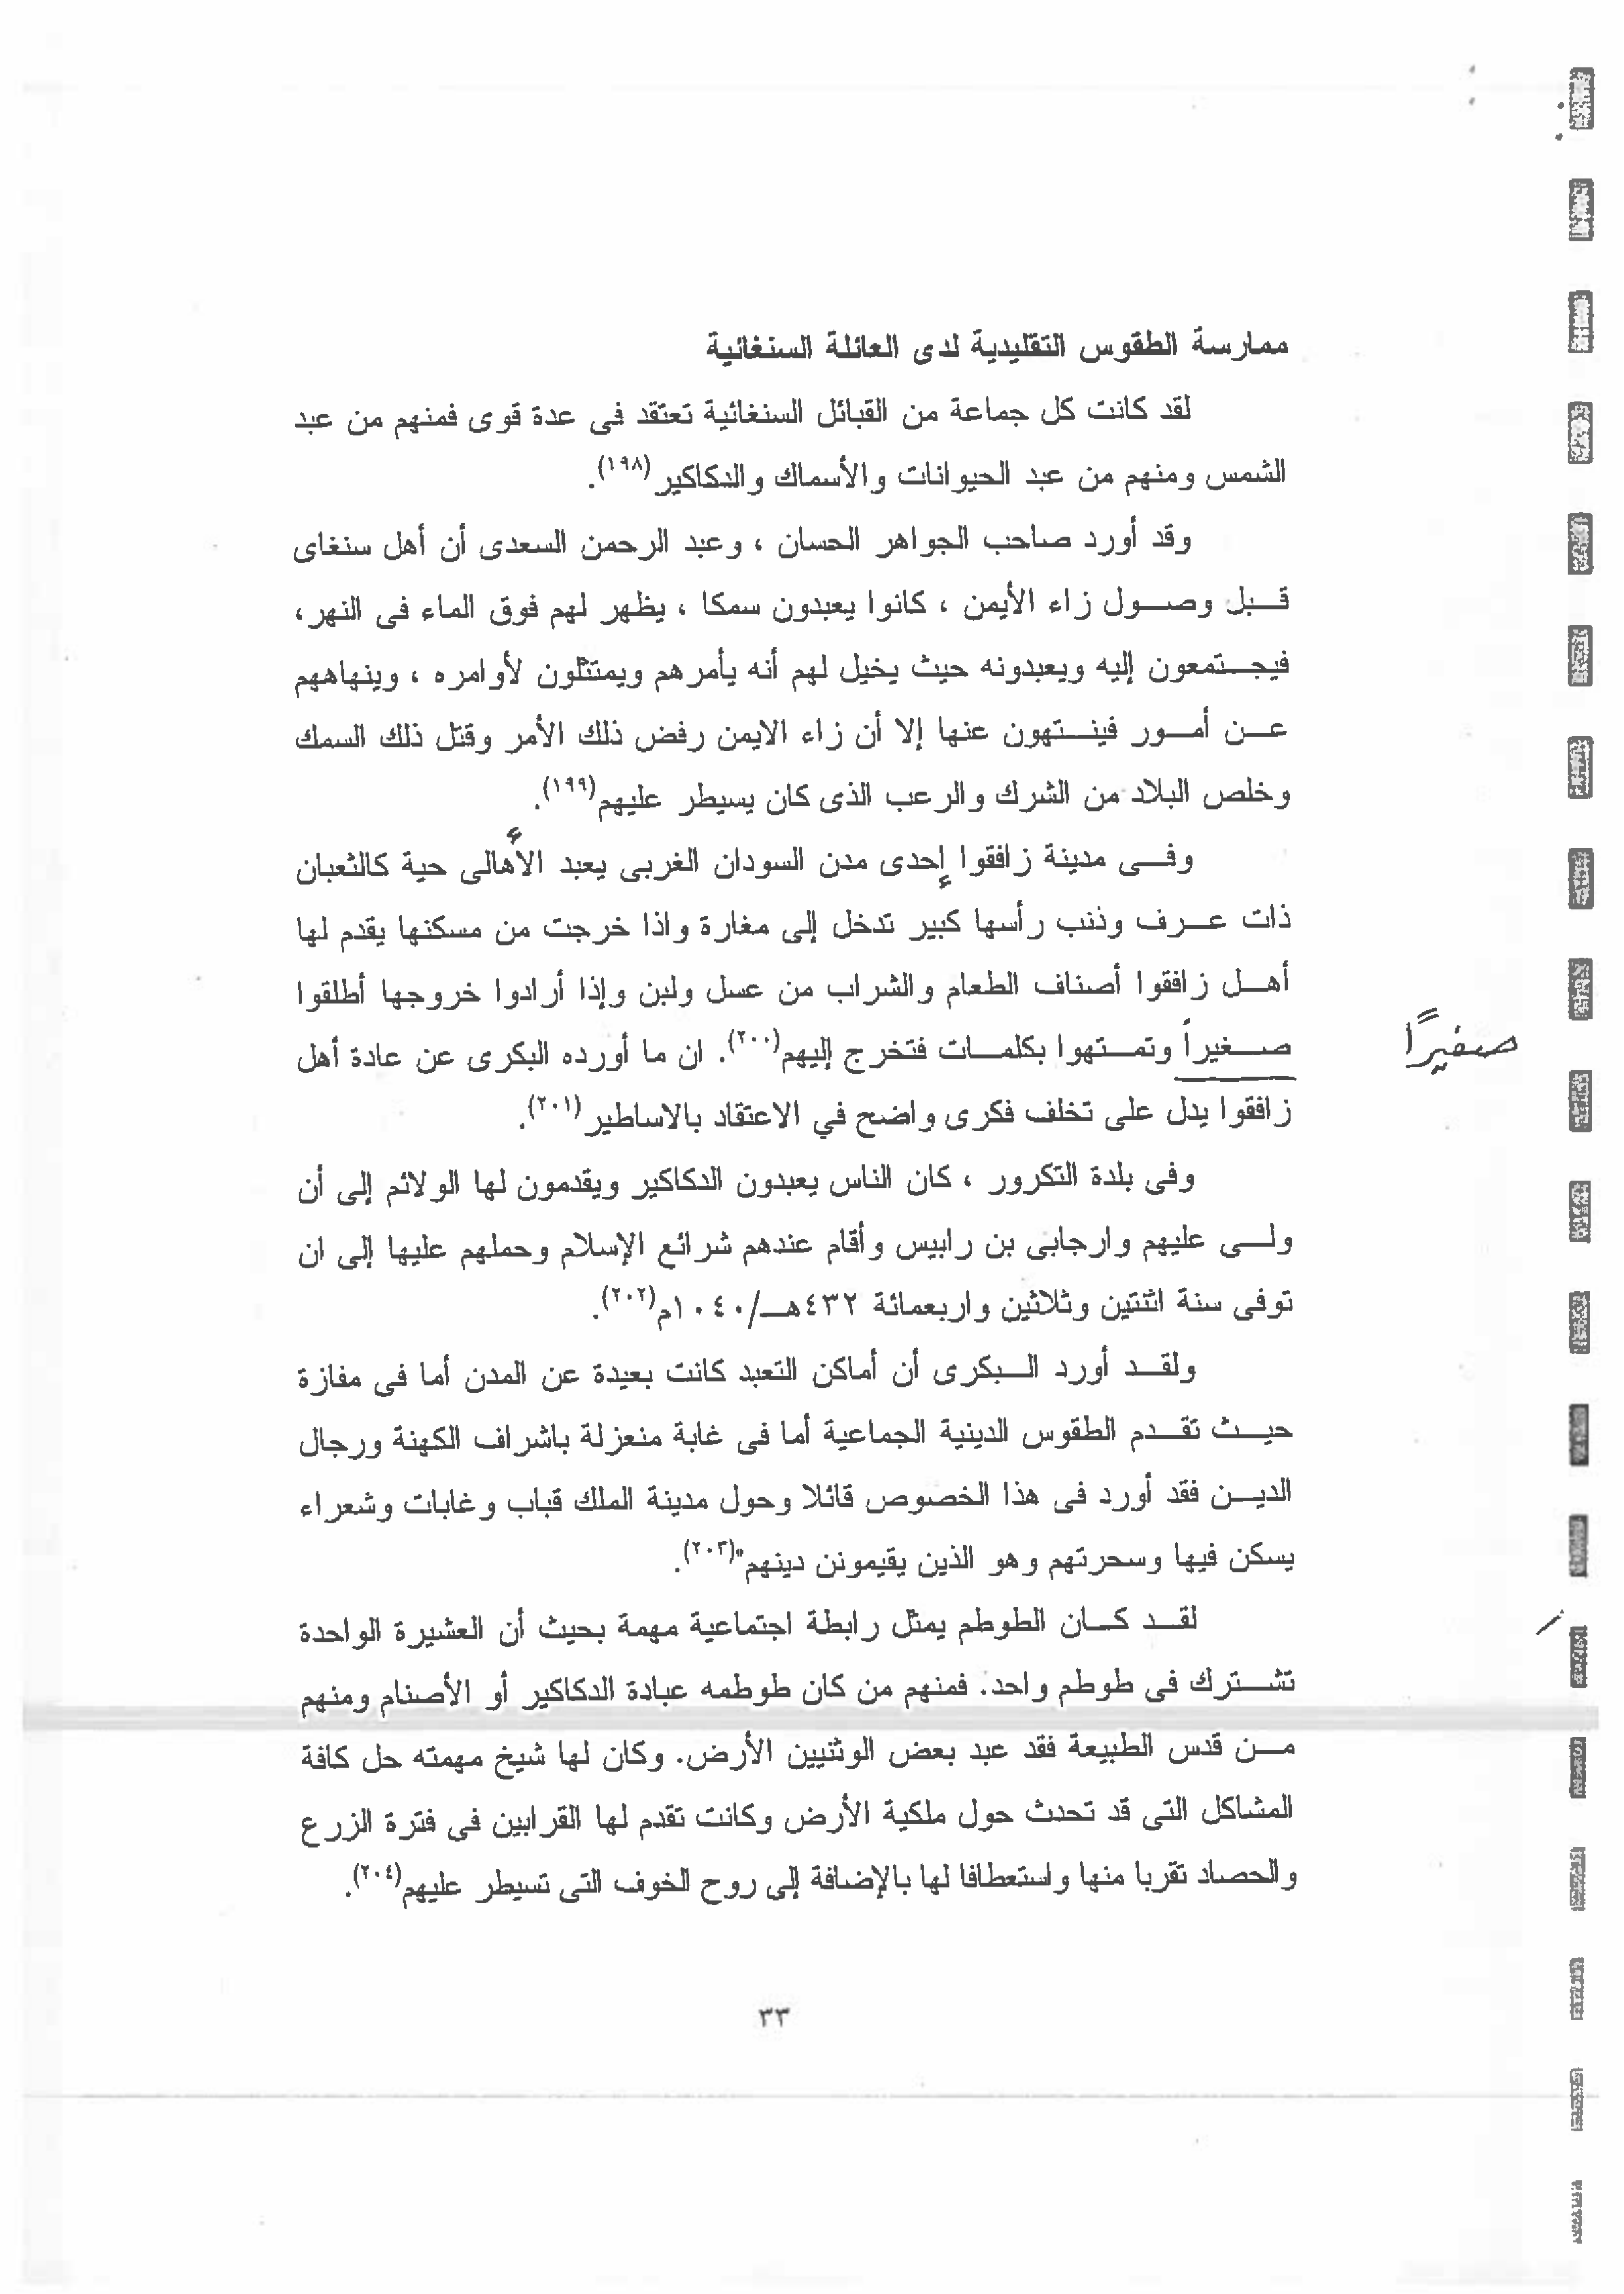 ممارسة الطقوس التقليدية لدى العائلة السنغائية
لقد كانت كل جماعة من القبائل السنغائية تعتقد فى عدة قوى فمنهم من عبد
الشمس ومنهم من عبد الحيوانات والأسماك والدكاكير(١٩٨).
وقد أورد صاحب الجواهر الحسان ، وعبد الرحمن السعدى أن أهل سنغاى
قبل وصول زاء الأيمن ، كانوا يعبدون سمكا ، يظهر لهم فوق الماء فى النهر،
فيجتمعون إليه ويعبدونه حيث يخيل لهم أنه يأمرهم ويمتثلون لأوامره ، وينهاهم
عن أمور فينتهون عنها إلا أن زاء الايمن رفض ذلك الأمر وقتل ذلك السمك
وخلص البلاد من الشرك والرعب الذى كان يسيطر عليهم(١٩٩).
وفى مدينة زافقوا إحدى مدن السودان الغربى يعبد الأهالى حية كالثعبان
ذات عرف وذنب رأسها كبير تدخل إلى مغارة واذا خرجت من مسكنها يقدم لها
أهل زافقوا أصناف الطعام والشراب من عسل ولبن وإذا أرادوا خروجها أطلقوا
صغيراً وتمتهوا بكلمات فتخرج إليهم(٢٠٠). ان ما أورده البكرى عن عادة أهل
صفيرًا
زافقوا يدل على تخلف فكرى واضح في الاعتقاد بالاساطير(٢٠١).
وفى بلدة التكرور ، كان الناس يعبدون الدكاكير ويقدمون لها الولائم إلى أن
ولى عليهم وارجابى بن رابيس وأقام عندهم شرائع الإسلام وحملهم عليها إلى ان
توفى سنة اثنتين وثلاثين واربعمائة ٤٣٢هـ/١٠٤٠م(٢٠٢).
ولقد أورد البكرى أن أماكن التعبد كانت بعيدة عن المدن أما فى مفازة
حيث تقدم الطقوس الدينية الجماعية أما فى غابة منعزلة باشراف الكهنة ورجال
الدين فقد أورد فى هذا الخصوص قائلا وحول مدينة الملك قباب وغابات وشعراء
يسكن فيها وسحرتهم وهو الذين يقيمونن دينهم"(٢٠٣).
لقد كان الطوطم يمثل رابطة اجتماعية مهمة بحيث أن العشيرة الواحدة
تشترك فى طوطم واحد. فمنهم من كان طوطمه عبادة الدكاكير أو الأصنام ومنهم
من قدس الطبيعة فقد عبد بعض الوثنيين الأرض. وكان لها شيخ مهمته حل كافة
المشاكل التى قد تحدث حول ملكية الأرض وكانت تقدم لها القرابين فى فترة الزرع
والحصاد تقربا منها واستعطافا لها بالإضافة إلى روح الخوف التى تسيطر عليهم(٢٠٤).
٣٣